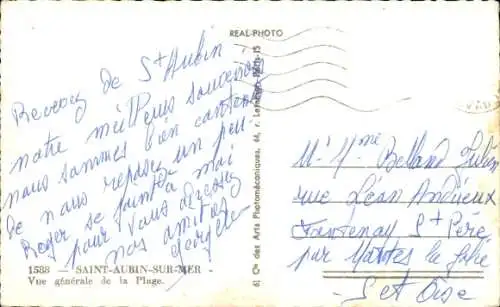 REAL-PHOTO
Recevez de St Aubin
notre meilleurs souvenirs
nous sommes bien contents
de nous reposer un peu
Roger se joint à moi
pour vous
nos amitiés
Georgette
1588 - SAINT-AUBIN-SUR-MER -
Vue générale de la Plage.
Cie des Arts Photomécaniques, 44, r. Letellier - PARIS-15
Mr Mme Belland
rue Léon
Fontenay St Père
par Mantes la Jolie
S et Oise